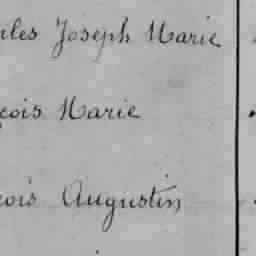 les Joseph Marie
çois Marie
çois Augustin